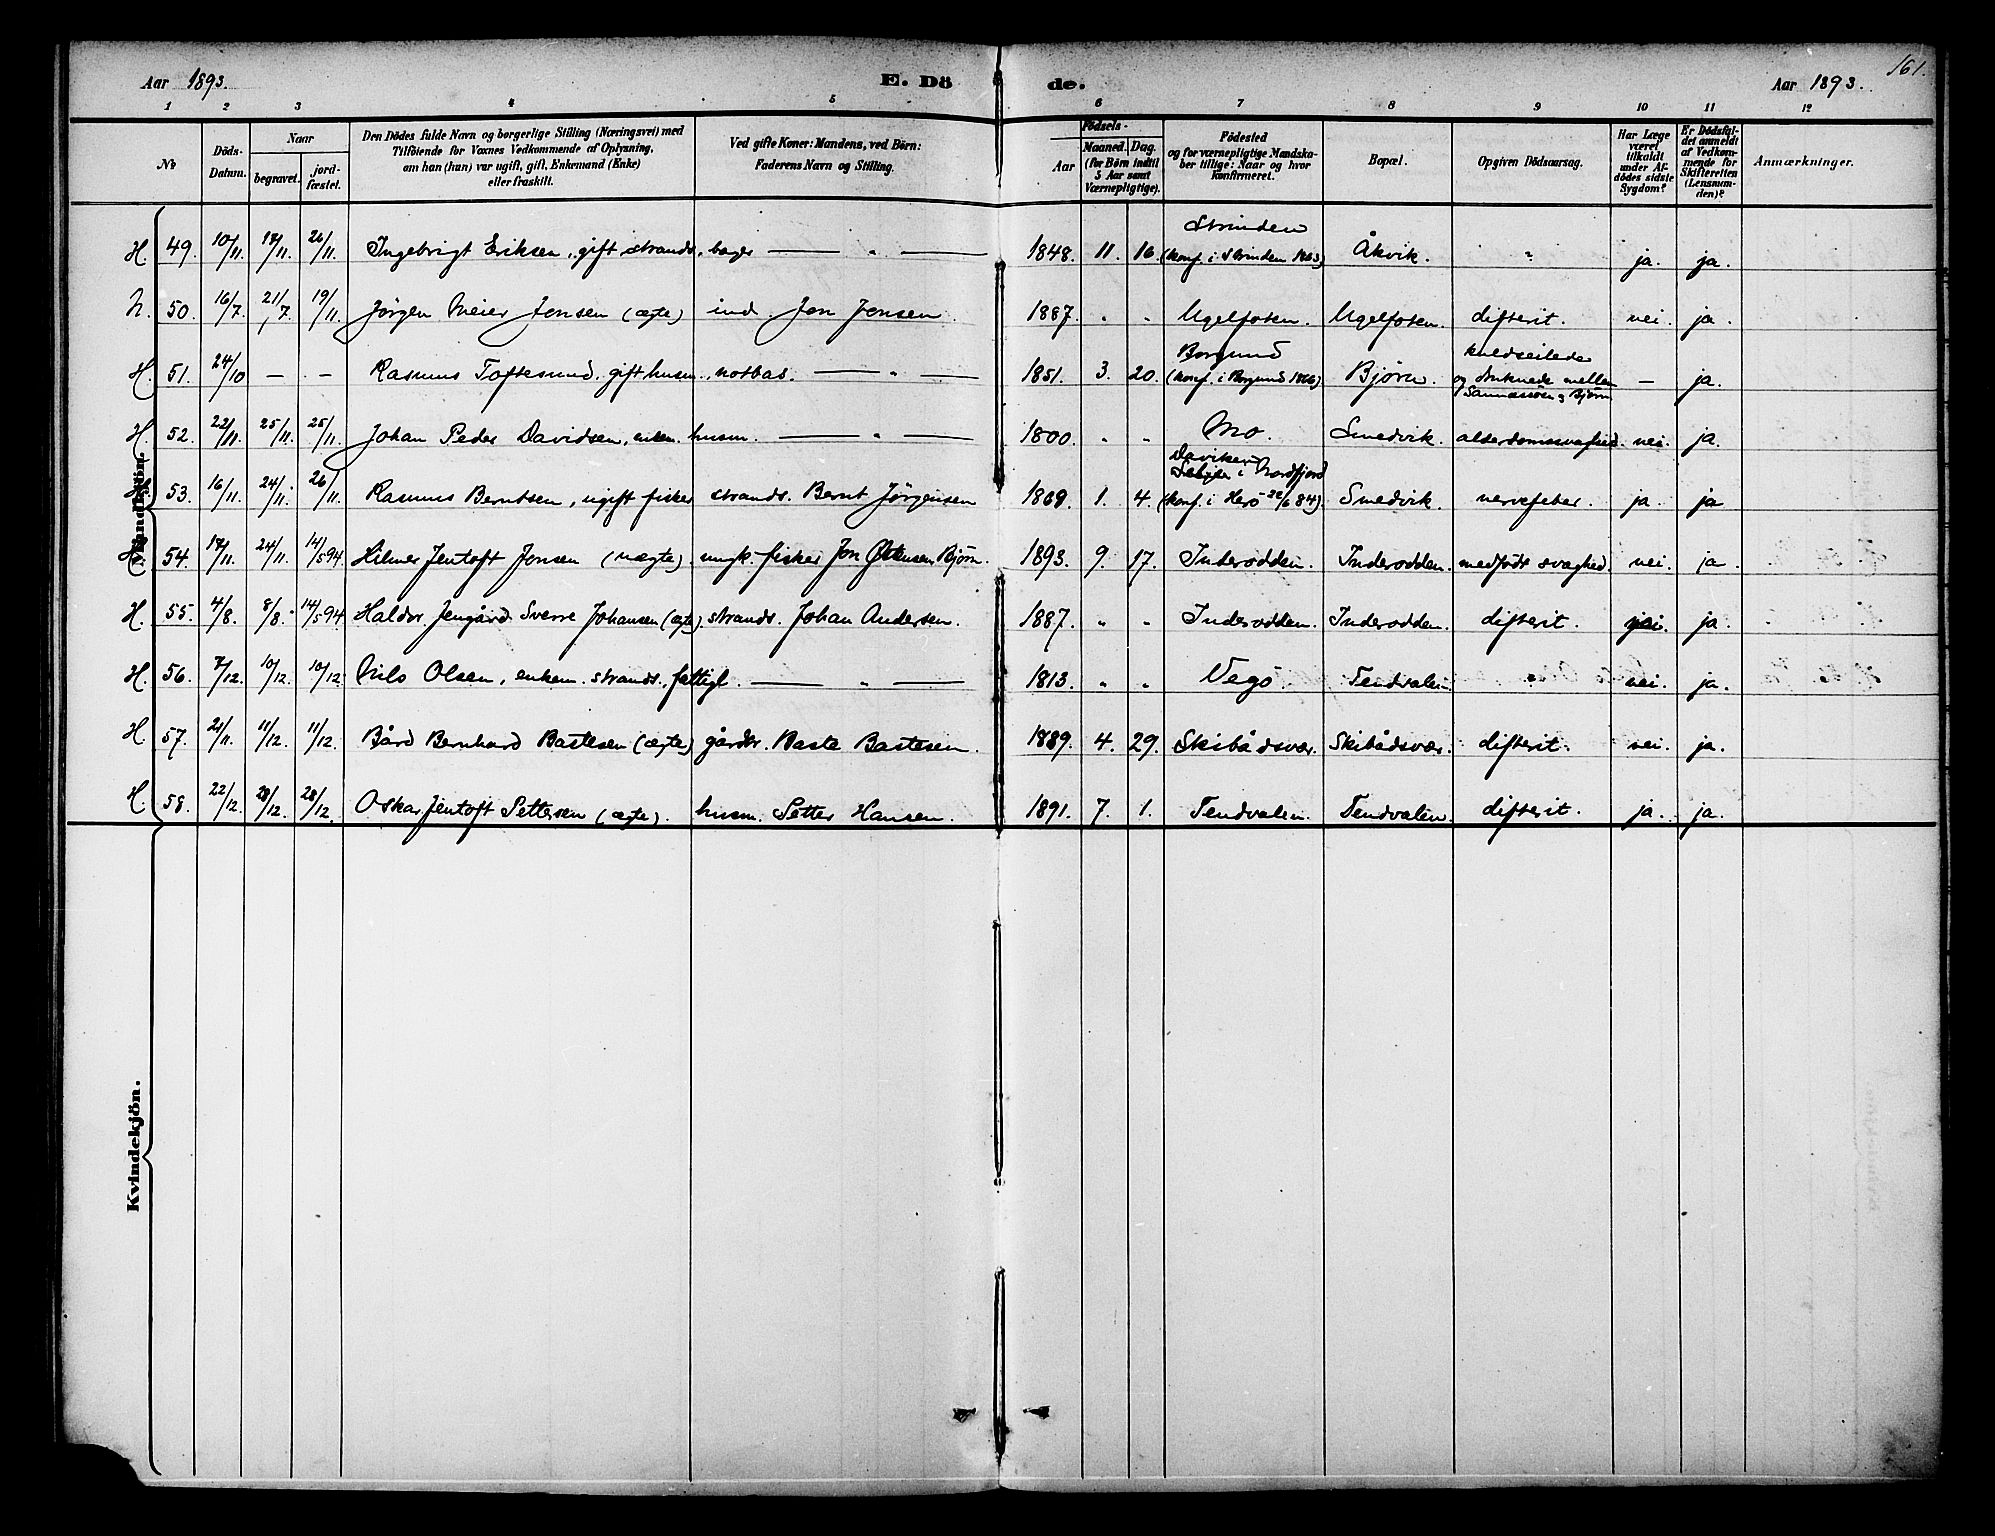 161.
Aar 1893. E. Dö de. Aar 1893.
1 2 3 4 5 6 7 8 9 10 11 12
No
Döds-Datum.
Naar
begravet. jord-fæstet.
Den Dödes fulde Navn og borgerlige Stilling (Næringsvei) med
Tilföiende for Voxnes Vedkommende af Oplysning,
om han (hun) var ugift, gift, Enkemand (Enke)
eller fraskilt.
Ved gifte Koner: Mandens, ved Börn:
Faderens Navn og Stilling.
Födsels-
Aar
Maaned. Dag.
(for Börn indtil
5 Aar samt
Værnepligtige).
Födested
og for værnepligtige Mandska-
ber tillige: Naar og hvor
konfirmeret.
Bopæl.
Opgiven Dödsaarsag.
Har Læge
været
tilkaldt
under Af-
dödes sidste
Sygdom?
Er Dödsfal-
det anmeldt
af Vedkom-
mende for
Skifteretten
(Lensman-
den)?
Anmærkninger.
H. 49. 10/11. 17/11. 26/11. Ingebrigt Eriksen, gift strands. bager — " — 1848. 11. 16. Strinden (konf. i Strinden 1863) Åkvik. " ja. ja.
N. 50. 16/7. 21/7. 19/11. Jörgen Meier Jonsen (ægte) ind. Jon Jonsen. 1887. " " Ugelfosen. Ugelfosen. difterit. nei. ja.
H. 51. 24/10 — — Rasmus Toftesund, gift husm., notbas. — " — 1851. 3. 20. Borgund (konf. i Borgund 1866) Bjørn. kuldseilede og druknede mellem Sannessöen og Bjørn — ja.
H. 52. 22/11. 25/11. 25/11. Johan Peder Davidsen, enkem. husm. — " — 1800. " " Mo. Smedvik. alderdomssvaghed. nei. ja.
H. 53. 16/11. 24/11. 26/11. Rasmus Berntsen, ugift fisker strands. Bernt Jörgensen 1869. 1. 4. Daviken i Nordfjord (konf. i Herö 22/6 84). Smedvik. nervefeber. ja. ja
H. 54. 17/11. 24/11. 14/5 94 Hilmer Jentoft Jonsen (uægte). ungk. fisker Jon Bjørn. 1893. 9. 17. Inderodden. Inderodden. medfödt svaghed. nei. ja.
H. 55. 4/8. 8/8. 14/5 94 Haldor Jengård Sverre Johansen (ægte). strands. Johan Andersen. 1887. " " Inderodden. Inderodden. difterit. ja.
H. 56. 7/12. 10/12. 10/12. Nils Olsen, enkem. strands., fattigl. — " — 1813. " " Vegö. Tendvalen. " nei. ja.
H. 57. 21/11. 11/12. 11/12. Bård Bernhard Bastesen (ægte) gårdbr. Baste Bastesen. 1889. 4. 29. Skibådsvær. Skibådsvær. difterit. nei. ja.
H. 58. 22/12. 28/12. 28/12. Oskar Jentoft Settersen (ægte). husm. Setter Hansen. 1891. 7. 1. Tendvalen. Tendvalen. difterit. ja. ja.
Kvindekjön.